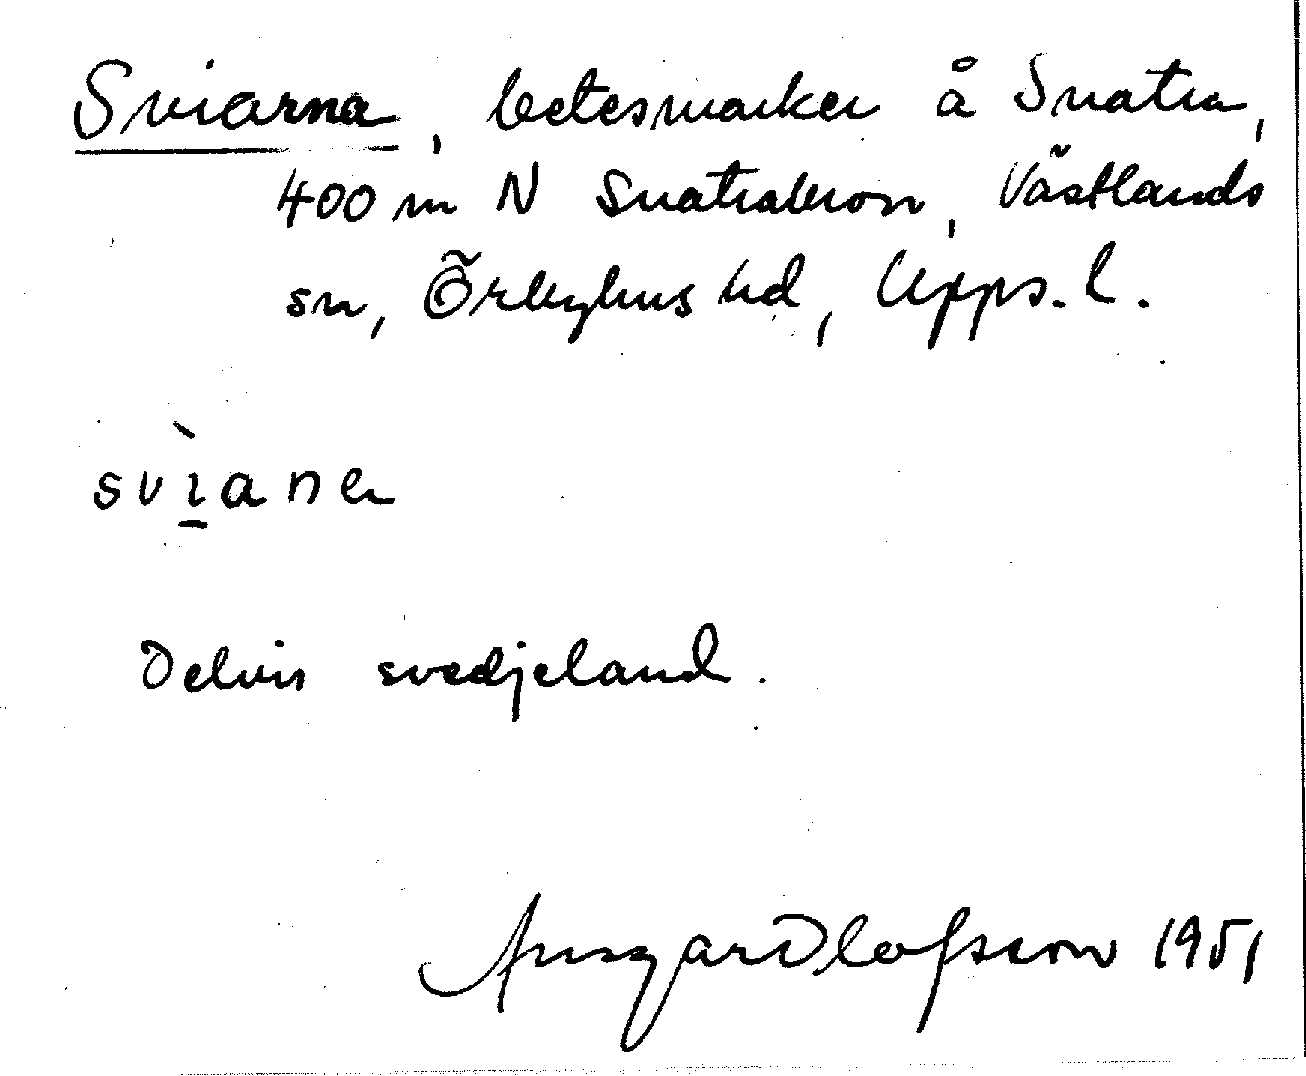 Sviarna, betesmarker å Snatra,
400 m N Snatrabron, Västlands
sn, Örbyhus hd, Upps. l.
svìanen
Delvis svedjeland.
Ansgar Olofsson 1951